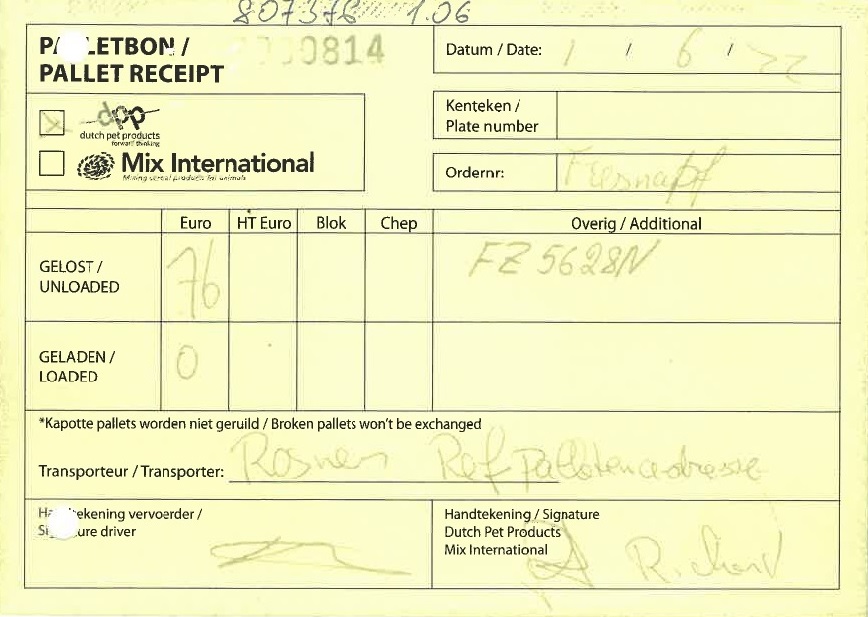 807376 1.06
PALLETBON / 0814
PALLET RECEIPT
Datum / Date: 1 / 6 / 22
dpp
dutch pet products
forward thinking
Mix International
Mixing cereal products for animals
Kenteken /
Plate number
Ordernr: Fresnapf
Euro HT Euro Blok Chep Overig / Additional
GELOST /
UNLOADED
76 FZ 5628N
GELADEN /
LOADED
0
*Kapotte pallets worden niet geruild / Broken pallets won't be exchanged
Transporteur / Transporter: Rosner Ref Palletenadresse
Handtekening vervoerder /
Signature driver
Handtekening / Signature
Dutch Pet Products
Mix International
Richard